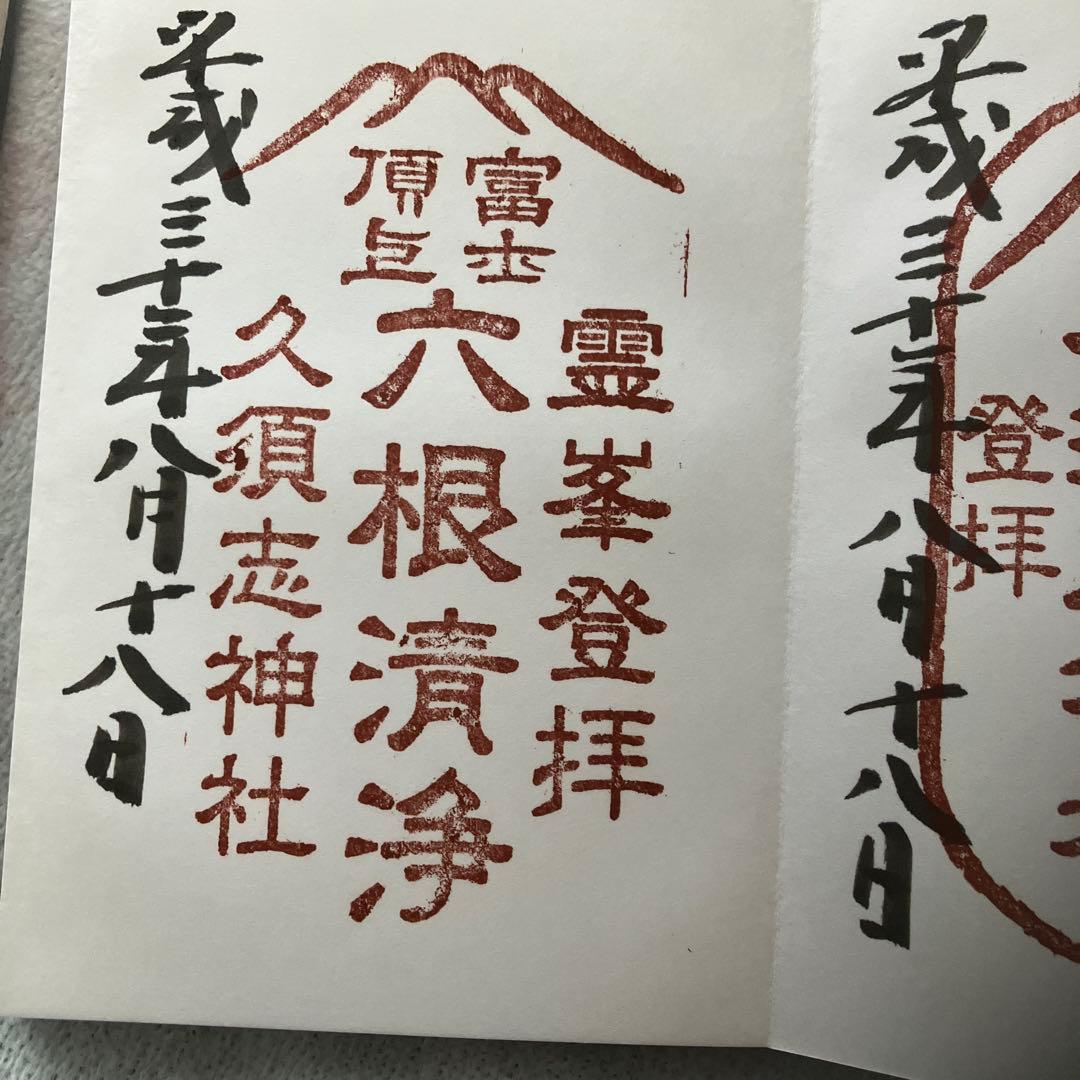 登拝
平成三十年八月十八日
富士
頂上
霊峯登拝
六根清浄
久須志神社
平成三十年八月十八日